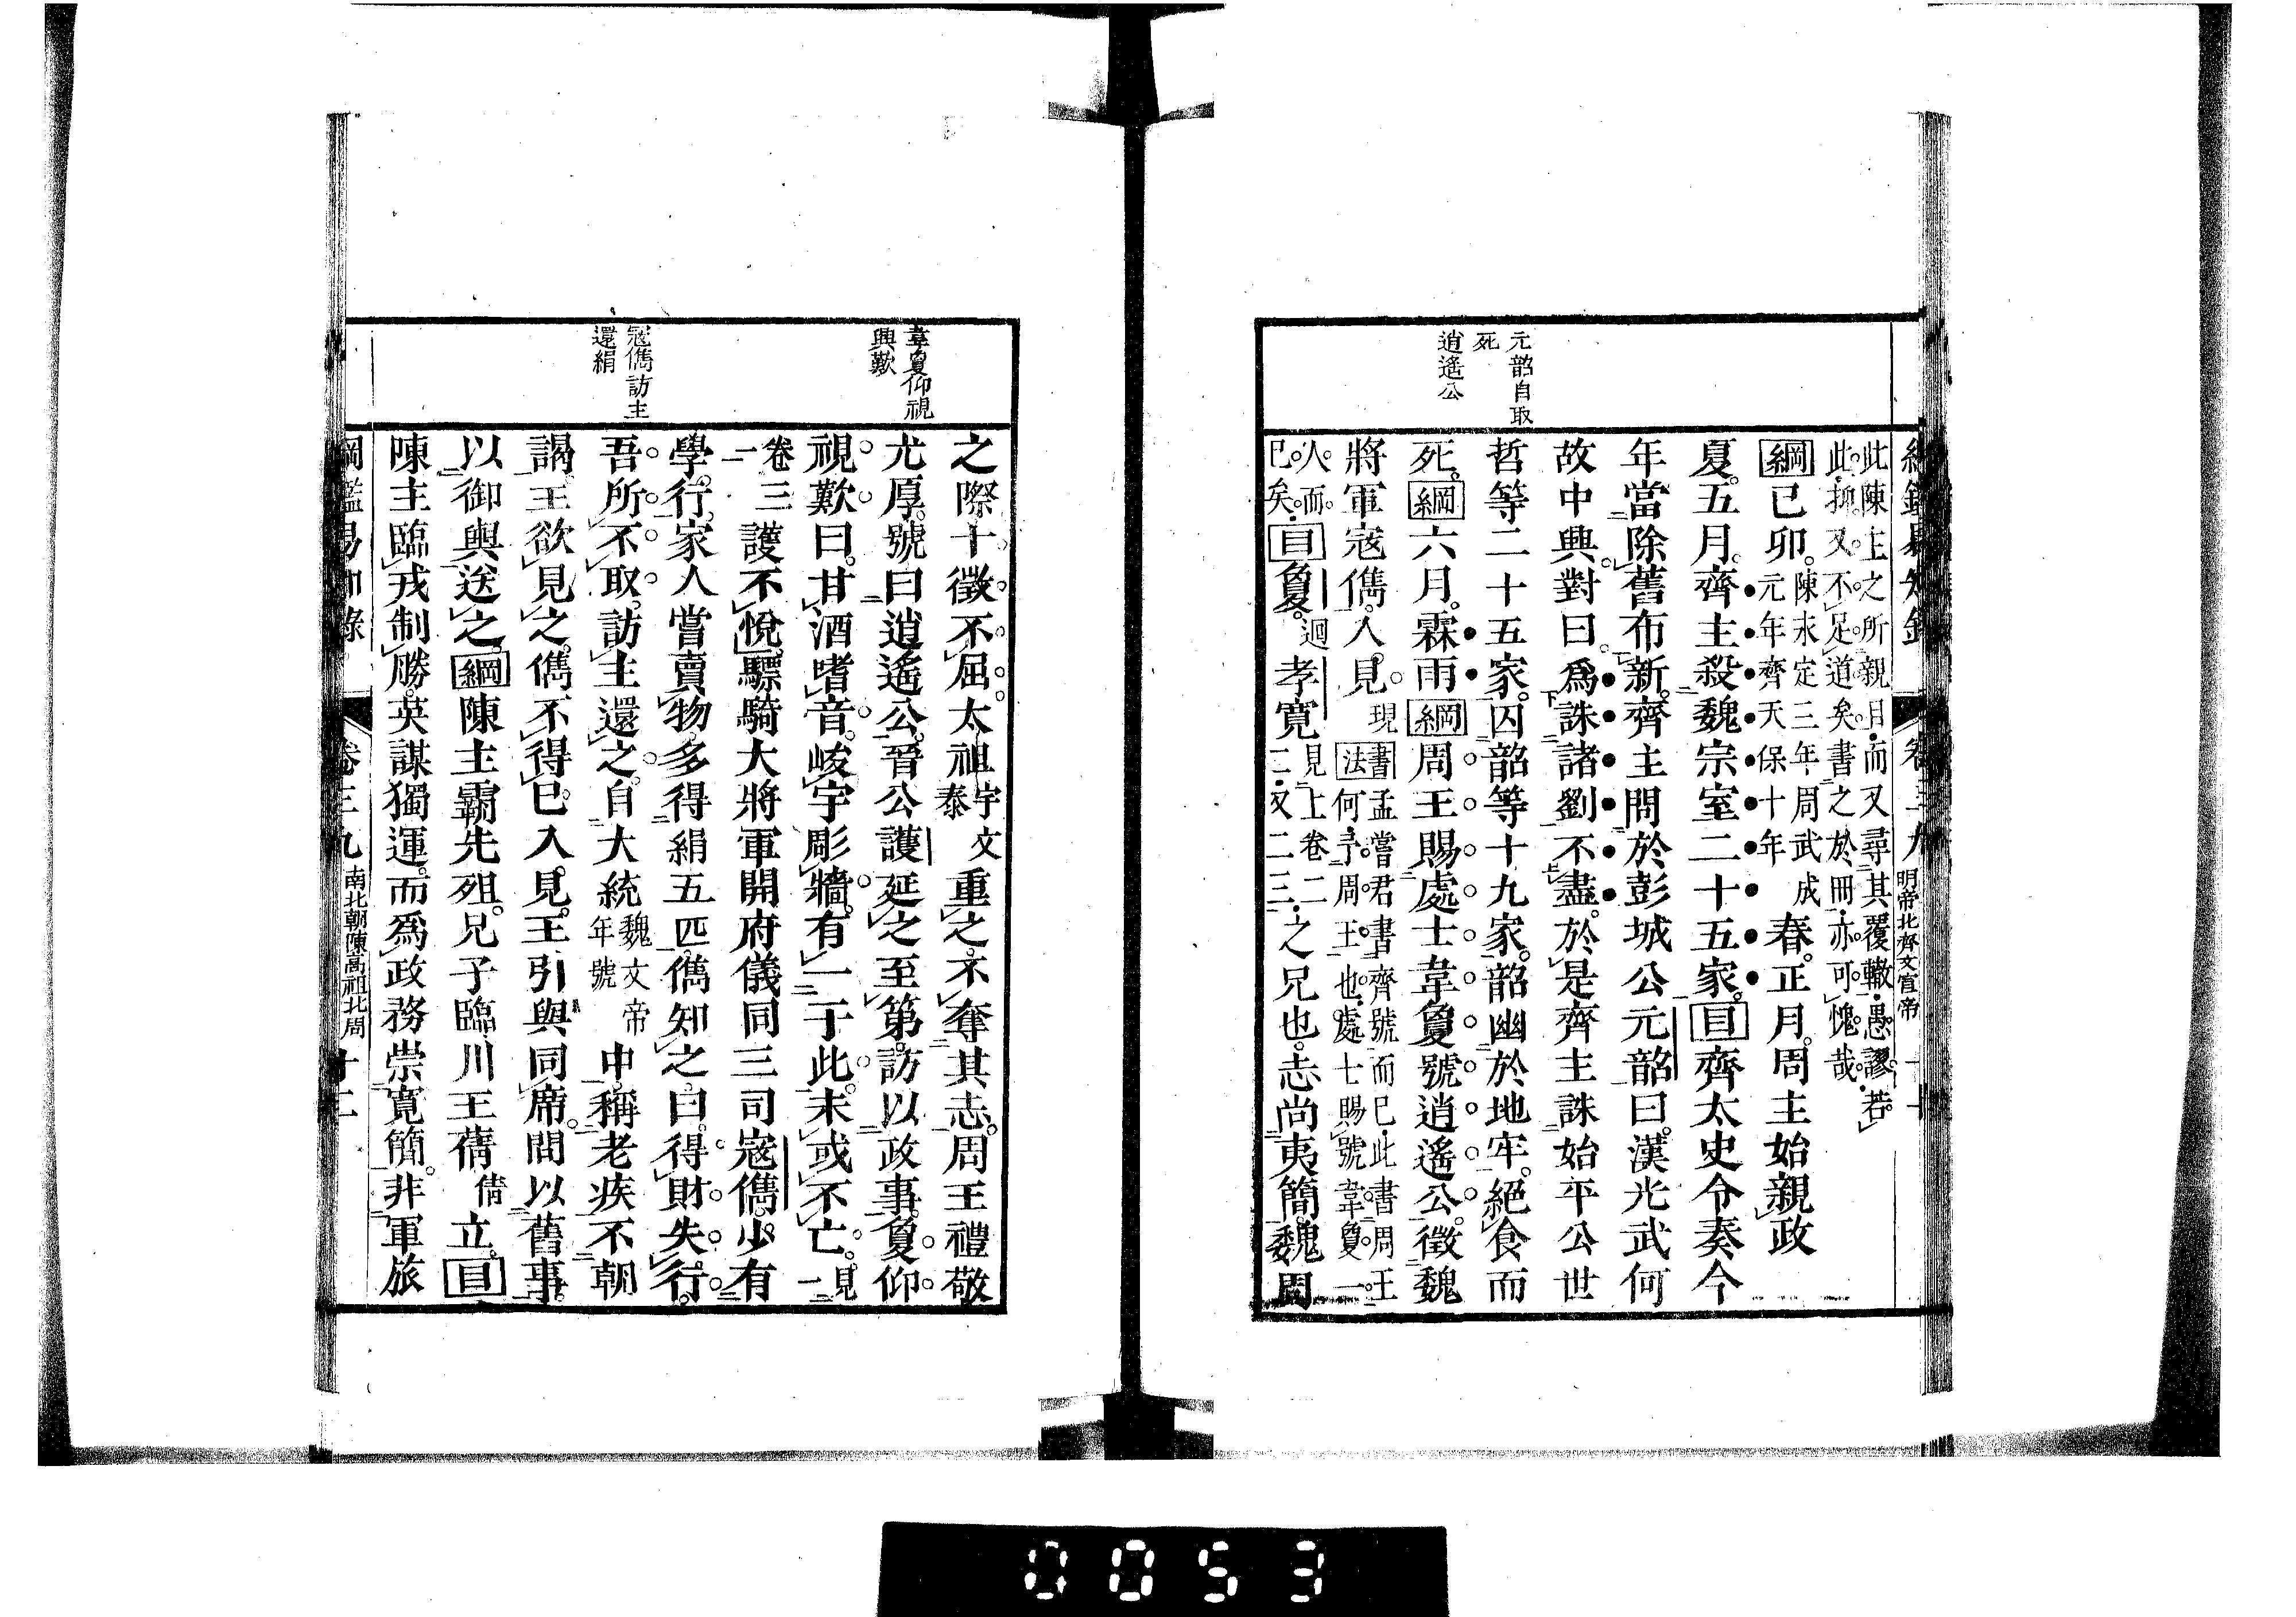 元韶自取
死
逍遙公
綱鑑易知錄 卷三九 明帝北齊文宣帝
此陳主之所親目而又尋其覆轍愚謬若
此抑又不足道矣書之於冊亦可愧哉
綱己卯陳永定三年周武成
元年齊天保十年春正月周主始親政
夏五月齊主殺魏宗室二十五家目齊太史令奏今
年當除舊布新齊主問於彭城公元韶曰漢光武何
故中興對曰爲誅諸劉不盡於是齊主誅始平公世
哲等二十五家囚韶等十九家韶幽於地牢絕食而
死綱六月霖雨綱周王賜處士韋敻號逍遙公徵魏
將軍寇儁入見現書法孟嘗君書齊號而已此書周王
何予周王也處士賜號韋敻一
人而
已矣目敻迴孝寬見上卷二
二又二三之兄也志尚夷簡魏周
韋敻仰視
興歎
寇儁訪主
還絹
之際十徵不屈太祖宇文
泰重之不奪其志周王禮敬
尤厚號曰逍遙公晉公護延之至第訪以政事敻仰
視歎曰甘酒嗜音峻宇彫牆有一于此未或不亡見
一
卷三護不悅驃騎大將軍開府儀同三司寇儁少有
學行家人嘗賣物多得絹五匹儁知之曰得財失行
吾所不取訪主還之自大統魏文帝
年號中稱老疾不朝
謁王欲見之儁不得已入見王引與同席問以舊事
以御輿送之綱陳主霸先殂兄子臨川王蒨倩立目
陳主臨戎制勝英謀獨運而爲政務崇寬簡非軍旅
綱鑑易知錄 卷三九 南北朝陳高祖北周 十二
0053